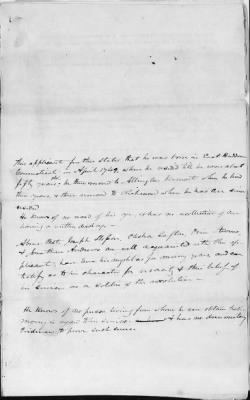 This applicant further states that he was born in East Haddam
Connecticut in April 1749, where he resided till he was about
fifty years, he then moved to Arlington Vermont where he lived
three years & then moved to Richmond where he has ever since
resided
He knows of no record of his age, & has no recollection of ever
having a written discharge -
Abner Ball, Joseph
& Jonathan Andrews are well acquainted with this ap-
plicant, have been his neighbors for many years and can
testify as to his character for veracity & their belief of
his services as a soldier of the revolution -
He knows of no person living from whom he can obtain testi-
mony & has no documentary
evidence to prove such service